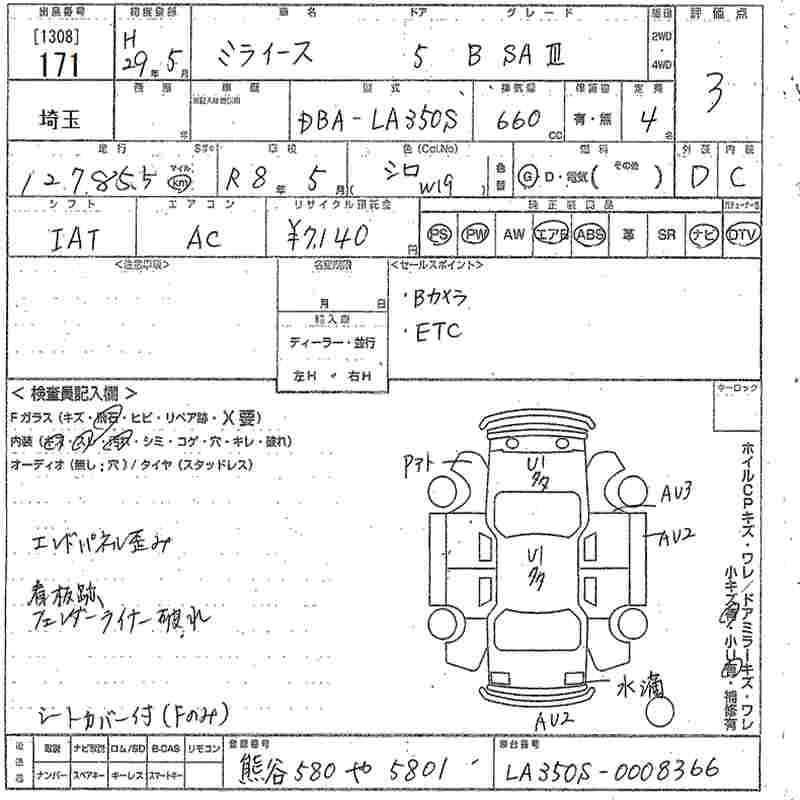 出品番号 初度登録 車名 ドア グレード 駆動 評価点
[1308] 171 H29年5月 ミライース 5 B SAⅢ 2WD・4WD 3
埼玉 車歴 型式 排気量 定員
年 DBA-LA350S 660cc 有・無 4名
走行 車検 色(Col.No) 色替 燃料 外装 内装
127,855 マイル km R8年5月 シロ W19 G D・電気( その他 ) D C
シフト エアコン リサイクル預託金 純正装備品
IAT AC ¥7,140円 PS PW AW エアB ABS 革 SR ナビ DTV
名変期限 <セールスポイント>
月 日 ・Bカメラ
輸入車 ・ETC
ディーラー・並行
左H・右H
< 検査員記入欄 > キーロック
Fガラス(キズ・飛石・ヒビ・リペア跡・X要)
内装(キズ・スレ・汚れ・シミ・コゲ・穴・キレ・破れ)
オーディオ(無し;穴)/タイヤ(スタッドレス)
ホイルCPキズ・ワレ/ドアミラーキズ・ワレ
小キズ有・小U有・補修有
U1
タタ
AU3
AU2
U1
タタ
エンドパネル歪み
看板跡、
フェンダーライナー破れ
水滴
AU2
シートカバー付(Fのみ)
後送品 取説 ナビ取説 ロム/SD B-CAS リモコン 登録番号 車台番号
ナンバー スペアキー キーレス スマートキー 熊谷 580 や 5801 LA350S-0008366